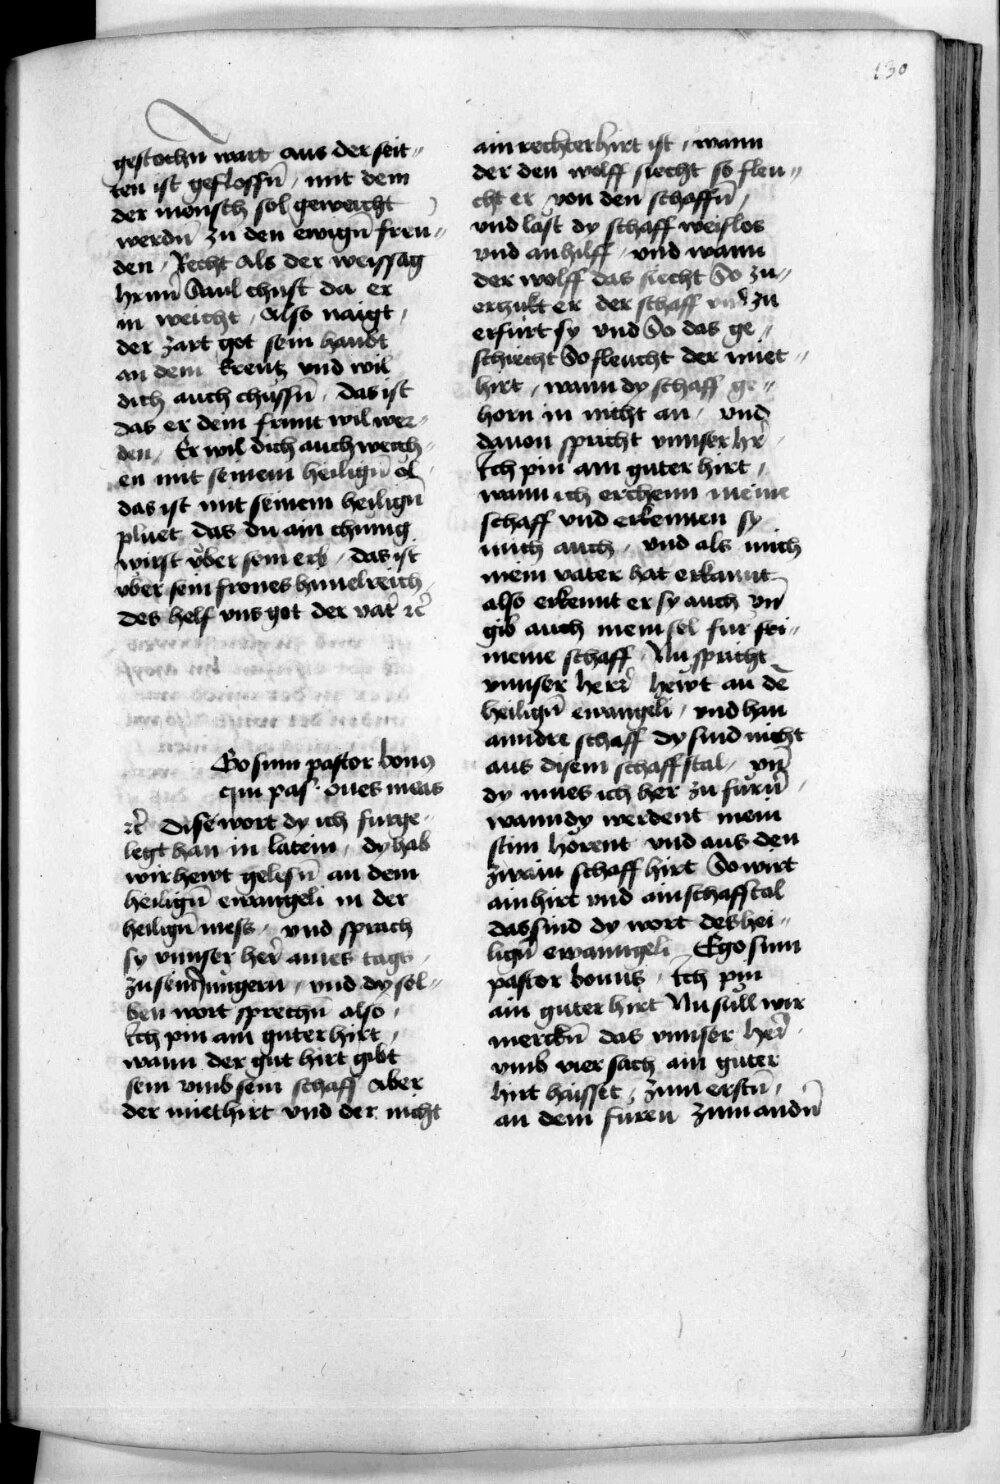 130
gestochñ wart aus der seit〃
ten ist geflossñ / mit dem
der mensch sol geweicht
werdñ zu den ewigñ freu〃
den / Recht als der weissag
hrnn̄ Saul chust da er
in weicht / Also naigt /
der zart got sein haubt
an dem kreutz vnd wil
dich auch chussñ / das ist
das er dein frunt wil wer〃
den / Er wil dich auch weich〃
en mit seinem heiligñ öl
das ist mit seinem heiligñ
pluet das du ain chunig
wirst vber sein erb / das ist
vber sein frones himelreich
des helf vns got der vat̄ ꝛc̄
Ego sum pastor bonus
cum pas· oues meas
ꝛc̄ Dise wort dy ich furge〃
legt han in latein / dy hab
wir hewt gelesñ an dem
heiligñ ewangeli in der
heiligñ mess / vnd sprach
sy vnnser her̄ aines tags /
zu sein Jungern / vnd dy sel〃
ben wort sprechñ also /
Ich pin ain guter hirt /
wann der gut hirt gibt
sein vmb sein schaff Aber
der miethirt vnd der nicht
ain rechter hirt ist / wann
der den wolff siecht so fleu〃
cht er / von den schaffñ /
vnd läst dy schaff weislos
vnd an hilff / vnd wann
der wolff das siecht So zu〃
erzukt er der schaff vnd zu
erfurt sy vnd So das ge〃
schiecht So fleucht der miet〃
hirt / wann dy schaff ge〃
horn in nicht an / vnd
dauon spricht vnnser hr̄
Ich pin ain guter hirt /
wann ich erchenn meine
schaff vnd erkennen sy
mich auch / vnd als mich
mein vater hat erkannt
also erkennt er sy auch vn̄
gib auch mein sel fur
meine schaff / Nu spricht
vnnser herr̄ hewt an dē
heiligñ ewangeli / vnd han
anndre schaff dy sind nicht
aus disem schaffstal / vn̄
dy mues ich her zu furn̄ /
wann dy werdent mein
stim hörent vnd aus den
zwain schaff hirt So wirt
ain hirt vnd ain schaffstal
das sind dy wort des hei〃
ligñ ewanngeli Ego sum
pastor bonus / Ich pin
ain guter hirt Nu sull wir
merckñ das vnnser her̄ /
vmb vier sach ain guter
hirt haisset / zum erstñ /
an dem füren zum andñ